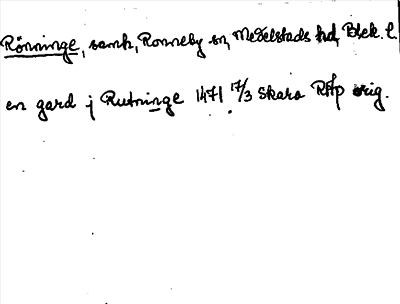 Rönninge, samh, Ronneby sn, Medelstads hd, Blek. l.
en gard j Rutninge 1471 7/3 Skara RAp orig.